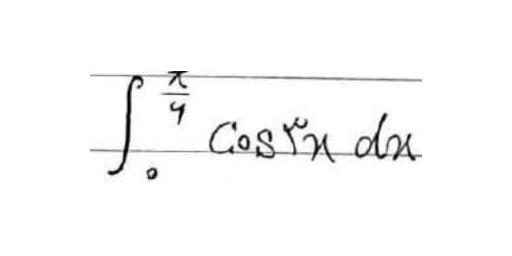 ∫₀^{π/4} Cos ۳x dx